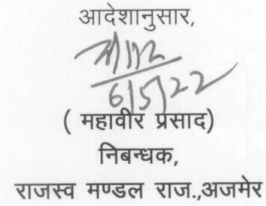 आदेशानुसार,
6/5/22
( महावीर प्रसाद)
निबन्धक,
राजस्व मण्डल राज.,अजमेर